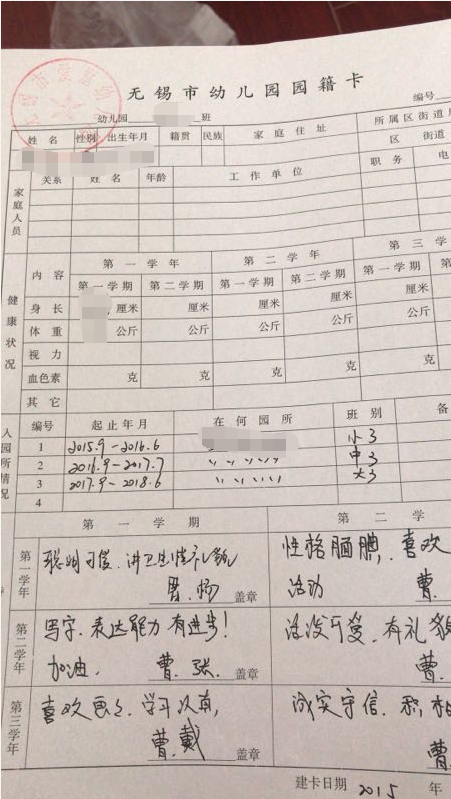 无锡市幼儿园园籍卡
幼儿园 班 编号
姓名 性别 出生年月 籍贯 民族 家庭住址 所属区街道
区 街道
家庭人员 关系 姓名 年龄 工作单位 职务 电
健康状况 内容 第一学年 第二学年 第三学
第一学期 第二学期 第一学期 第二学期 第一学期 第二
身长 厘米 厘米 厘米 厘米 厘米
体重 公斤 公斤 公斤 公斤 公斤
视力
血色素 克 克 克 克 克
其它
入园所情况 编号 起止年月 在何园所 班别 备
1 2015.9-2016.6 小3
2 2016.9-2017.7 〃〃〃〃〃 中3
3 2017.9-2018.6 〃〃〃〃〃 大3
4
第一学期 第二学
第一学年 聪明可爱、讲卫生懂礼貌 性格腼腆,喜欢
盖章 活动 曹.
第二学年 写字、表达能力有进步! 活泼可爱、有礼貌
加油. 曹.张. 盖章 曹.
第三学年 喜欢画画、学习认真, 诚实守信、积极
曹.戴 盖章 曹
建卡日期 2015 年